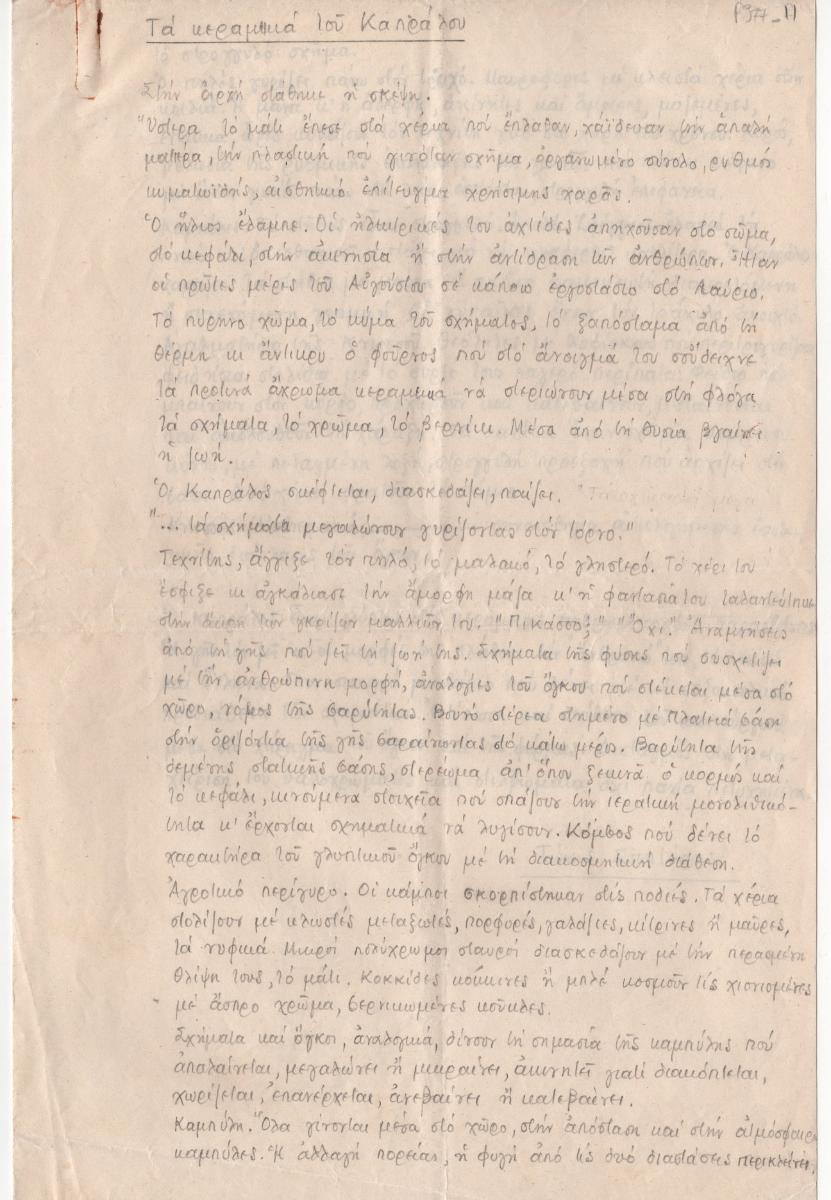 Τά κεραμικά τοῦ Καπράλου
Στήν ἀρχή στάθηκε ἡ σκέψη.
Ὕστερα τό μάτι ἔπεσε στά χέρια πού ἔπλαθαν, χάϊδευαν τήν ἁπαλή
ματιέρα, τήν πλαστική πού γινόταν σχῆμα, ὀργανωμένο σύνολο, ρυθμός
κυματωϊδής, αἰσθητικό ἐπίτευγμα χρήσιμης χαρᾶς.
Ὁ ἥλιος ἔλαμπε. Οἱ ἠλεκτρικές του ἀχτίδες ἀπηχοῦσαν στό σῶμα,
στό κεφάλι, στήν ἀκινησία ἤ στήν ἀντίδραση τῶν ἀνθρώπων. Ἦταν
οἱ πρῶτες μέρες τοῦ Αὐγούστου σέ κάποιο ἐργοστάσιο στό Λαύριο.
Τό πύρηνο χῶμα, τό κῦμα τοῦ σχήματος, τό ξαπόσταμα ἀπό τή
θέρμη κι ἄντικρυ ὁ φοῦρνος πού στό ἄνοιγμά του σοὔδειχνε
τά προϊνά ἄχρωμα κεραμικά νά στεριώνουν μέσα στή φλόγα
τά σχήματα, τό χρῶμα, τό βερνίκι. Μέσα ἀπό τή θυσία βγαίνει
ἡ ζωή.
Ὁ Καπράλος σκέφτεται, διασκεδάζει, παίζει.
"... τά σχήματα μεγαλώνουν γυρίζοντας στόν τόρνο."
Τεχνίτης, ἄγγιξε τόν πηλό, τό μαλακό, τό γλιστερό. Τό χέρι του
ἔσφιξε κι ἀγκάλιασε τήν ἄμορφη μάζα κ' ἡ φαντασία του ταλαντεύτηκε
στήν ἄκρη τῶν γκρίζων μαλλιῶν του. "Πικάσσο;" "Ὄχι." Ἀναμνήσεις
ἀπό τή γῆς πού ζεῖ τή ζωή της. Σχήματα τῆς φύσης πού συσχετίζει
μέ τήν ἀνθρώπινη μορφή, ἀναλογίες τοῦ ὄγκου πού στέκεται μέσα στό
χῶρο, νόμος τῆς βαρύτητας. Βουνό στέρεα στημένο μέ πλατειά βάση
στήν ὁριζόντια τῆς γῆς βαραίνοντας τό κάτω μέρος. Βαρύτητα τῆς
δεμένης στατικῆς βάσης, στερέωμα ἀπ' ὅπου ξεκινᾶ ὁ κορμός καί
τό κεφάλι, κινούμενα στοιχεῖα πού σπάζουν τήν ἱερατική μονολιθικό-
τητα κ' ἔρχονται σχηματικά νά λυγίσουν. Κόμβος πού δένει τό
χαρακτήρα τοῦ γλυπτικοῦ ὄγκου μέ τή διακοσμητική διάθεση.
Ἀγροτικό περίγυρο. Οἱ κάμποι σκορπίστηκαν στίς ποδιές. Τά χέρια
στολίζουν μέ κλωστές μεταξωτές, πορφυρές, γαλάζιες, κίτρινες ἤ μαῦρες,
τά νυφικά. Μικροί πολύχρωμοι σταυροί διασκεδάζουν μέ τήν περασμένη
θλίψη τους, τό μάτι. Κοκκίδες κόκκινες ἤ μπλέ κοσμοῦν τίς χιονισμένες
μέ ἄσπρο χρῶμα, βερνικωμένες κοῦκλες.
Σχήματα καί ὄγκοι, ἀναλογικά, δίνουν τή σημασία τῆς καμπύλης πού
ἁπαλαίνεται, μεγαλώνει ἤ μικραίνει, ἀκινητεῖ γιατί διακόπτεται,
χωρίζεται, ἐπανέρχεται, ἀνεβαίνει ἤ κατεβαίνει.
Καμπύλη. Ὅλα γίνονται μέσα στό χῶρο, στήν ἀπόσταση καί στήν ἀτμόσφαιρα
καμπύλες. Ἡ ἀλλαγή πορείας, ἡ φυγή ἀπό τίς δυό διαστάσεις περικλείνει,